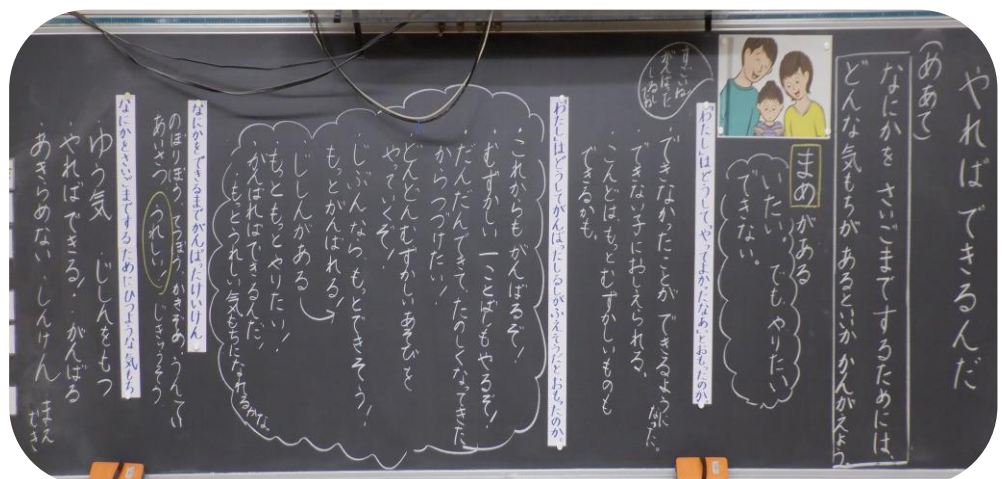 やればできるんだ
(めあて)
なにかを さいごまでするためには、
どんな気もちが あるといいか かんがえよう
まめがある
いたい でも やりたい
できない。
すごいね
がんばった
しるし
「わたし」はどうして、やってよかったなあとおもったのか。
できなかったことが できるようになった。
・できない子におしえられる。
・こんどはもっとむずかしいものも
できるかも。
「わたし」はどうしてがんばったしるしがふえそうだとおもったのか。
・これからも がんばるぞ!
・むずかしい 一ことばもやるぞ!
・だんだんできて、たのしくなってきた
からつづけたい!
・どんどんむずかしいあそびを
やっていくぞ!
・じぶんなら、もっとできそう!
もっとがんばれる!
・じしんがある
・もっともっとやりたい!
・がんばればできるんだ。
・もっとうれしい気もちになれるかな
なにかをできるまでがんばったけいけん
のぼりぼう てつぼう かきぞめ うんてい
あいさつ うれしい! じきゅうそう
なにかをさいごまでするためにひつような気もち
ゆう気 ・じしんをもつ
やればできる! ・がんばる
・あきらめない ・しんけん まえむき